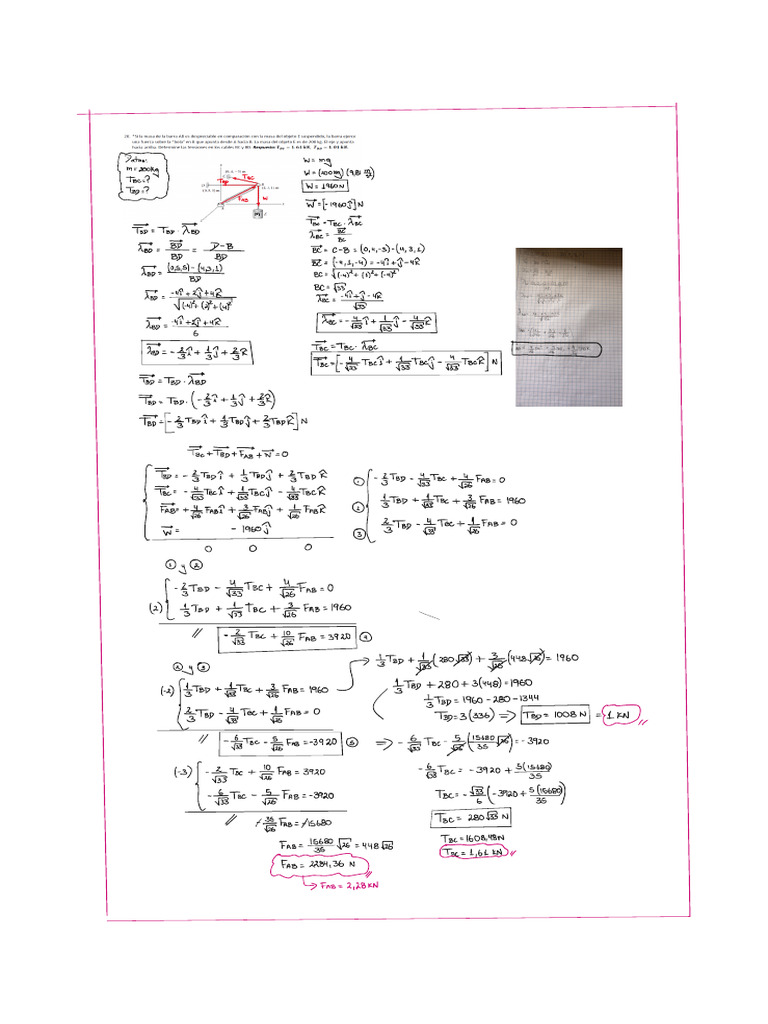 20. *Si la masa de la barra AB es despreciable en comparación con la masa del objeto E suspendido, la barra ejerce
una fuerza sobre la "bola" en B que apunta desde A hacia B. La masa del objeto E es de 200 kg. El eje y apunta
hacia arriba. Determine las tensiones en los cables BC y BD.
Datos:
m = 200kg
TBC = ?
TBD = ?
TBC
TBD
FAB
W
m
W = mg
W = (200kg)(9.81 m/s²)
W = 1960N
W = [-1960ĵ] N
TBD = TBD · λBD
λBD = BD/BD = D-B/BD
λBD = (0,5,5) - (4,3,1)/BD
λBD = -4î+2ĵ+4k̂/√(-4)²+(2)²+(4)²
λBD = -4î+2ĵ+4k̂/6
λBD = -2/3 î + 1/3 ĵ + 2/3 k̂
TBC = TBC · λBC
λBC = BC/BC
BC = C-B = (0,4,-3) - (4,3,1)
BC = (-4,1,-4) = -4î+ĵ-4k̂
BC = √(-4)²+(1)²+(-4)²
BC = √33
λBC = -4î+ĵ-4k̂/√33
λBC = -4/√33 î + 1/√33 ĵ - 4/√33 k̂
TBC = TBC · λBC
TBC = [-4/√33 TBC î + 1/√33 TBC ĵ - 4/√33 TBC k̂] N
TBD = TBD · λBD
TBD = TBD · (-2/3 î + 1/3 ĵ + 2/3 k̂)
TBD = [-2/3 TBD î + 1/3 TBD ĵ + 2/3 TBD k̂] N
TBC + TBD + FAB + W = 0
TBD = -2/3 TBD î + 1/3 TBD ĵ + 2/3 TBD k̂
TBC = -4/√33 TBC î + 1/√33 TBC ĵ - 4/√33 TBC k̂
FAB = +4/√26 FAB î + 3/√26 FAB ĵ + 1/√26 FAB k̂
W = -1960ĵ
0 0 0
① -2/3 TBD - 4/√33 TBC + 4/√26 FAB = 0
② 1/3 TBD + 1/√33 TBC + 3/√26 FAB = 1960
③ 2/3 TBD - 4/√33 TBC + 1/√26 FAB = 0
① y ②
-2/3 TBD - 4/√33 TBC + 4/√26 FAB = 0
(2) 1/3 TBD + 1/√33 TBC + 3/√26 FAB = 1960
// -2/√33 TBC + 10/√26 FAB = 3920 ④
② y ③
(-2) 1/3 TBD + 1/√33 TBC + 3/√26 FAB = 1960
2/3 TBD - 4/√33 TBC + 1/√26 FAB = 0
// -6/√33 TBC - 5/√26 FAB = -3920 ⑤
(-3) -2/√33 TBC + 10/√26 FAB = 3920
-6/√33 TBC - 5/√26 FAB = -3920
// -35/√26 FAB = -15680
FAB = 15680/35 √26 = 448√26
FAB = 2284,36 N
FAB = 2,28 KN
1/3 TBD + 1/√33 (280√33) + 3/√26 (448√26) = 1960
1/3 TBD + 280 + 3(448) = 1960
1/3 TBD = 1960 - 280 - 1344
TBD = 3(336) => TBD = 1008 N = 1 KN //
=> -6/√33 TBC - 5/√26 (15680/35 √26) = -3920
-6/√33 TBC = -3920 + 5(15680)/35
TBC = -√33/6 (-3920 + 5(15680)/35)
TBC = 280√33 N
TBC = 1608,48 N
TBC = 1,61 KN //